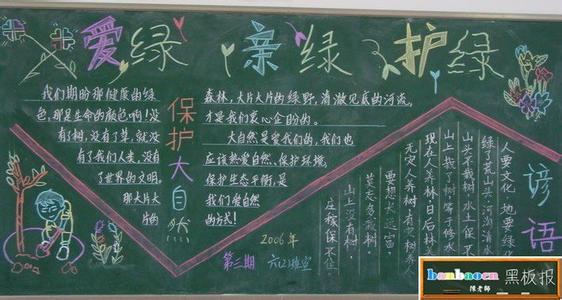 爱绿 亲绿 护绿
我们期盼那健康的绿
色,那是生命的颜色啊!没
有了树,没有了草,就没
有了我们人类,没有
了世界的文明。
那大片大
片的
保护大自然
森林,大片大片的绿野,清澈见底的河流,
才是我们衷心企盼的。
大自然是爱我们的,我们也
应该热爱自然、保护环境,
保护生态平衡,是
我们爱自然
的方式!
2006年
第三期 六(2)班宣
谚语
人要文化,地要绿化
绿了荒山头,河里清水
山头不栽树,水土保不
山上栽了树
现在人养林,日后林
无灾人养树,有灾树养
要想
山上没有树,
庄稼保不住
banbaocn 黑板报
陈老师